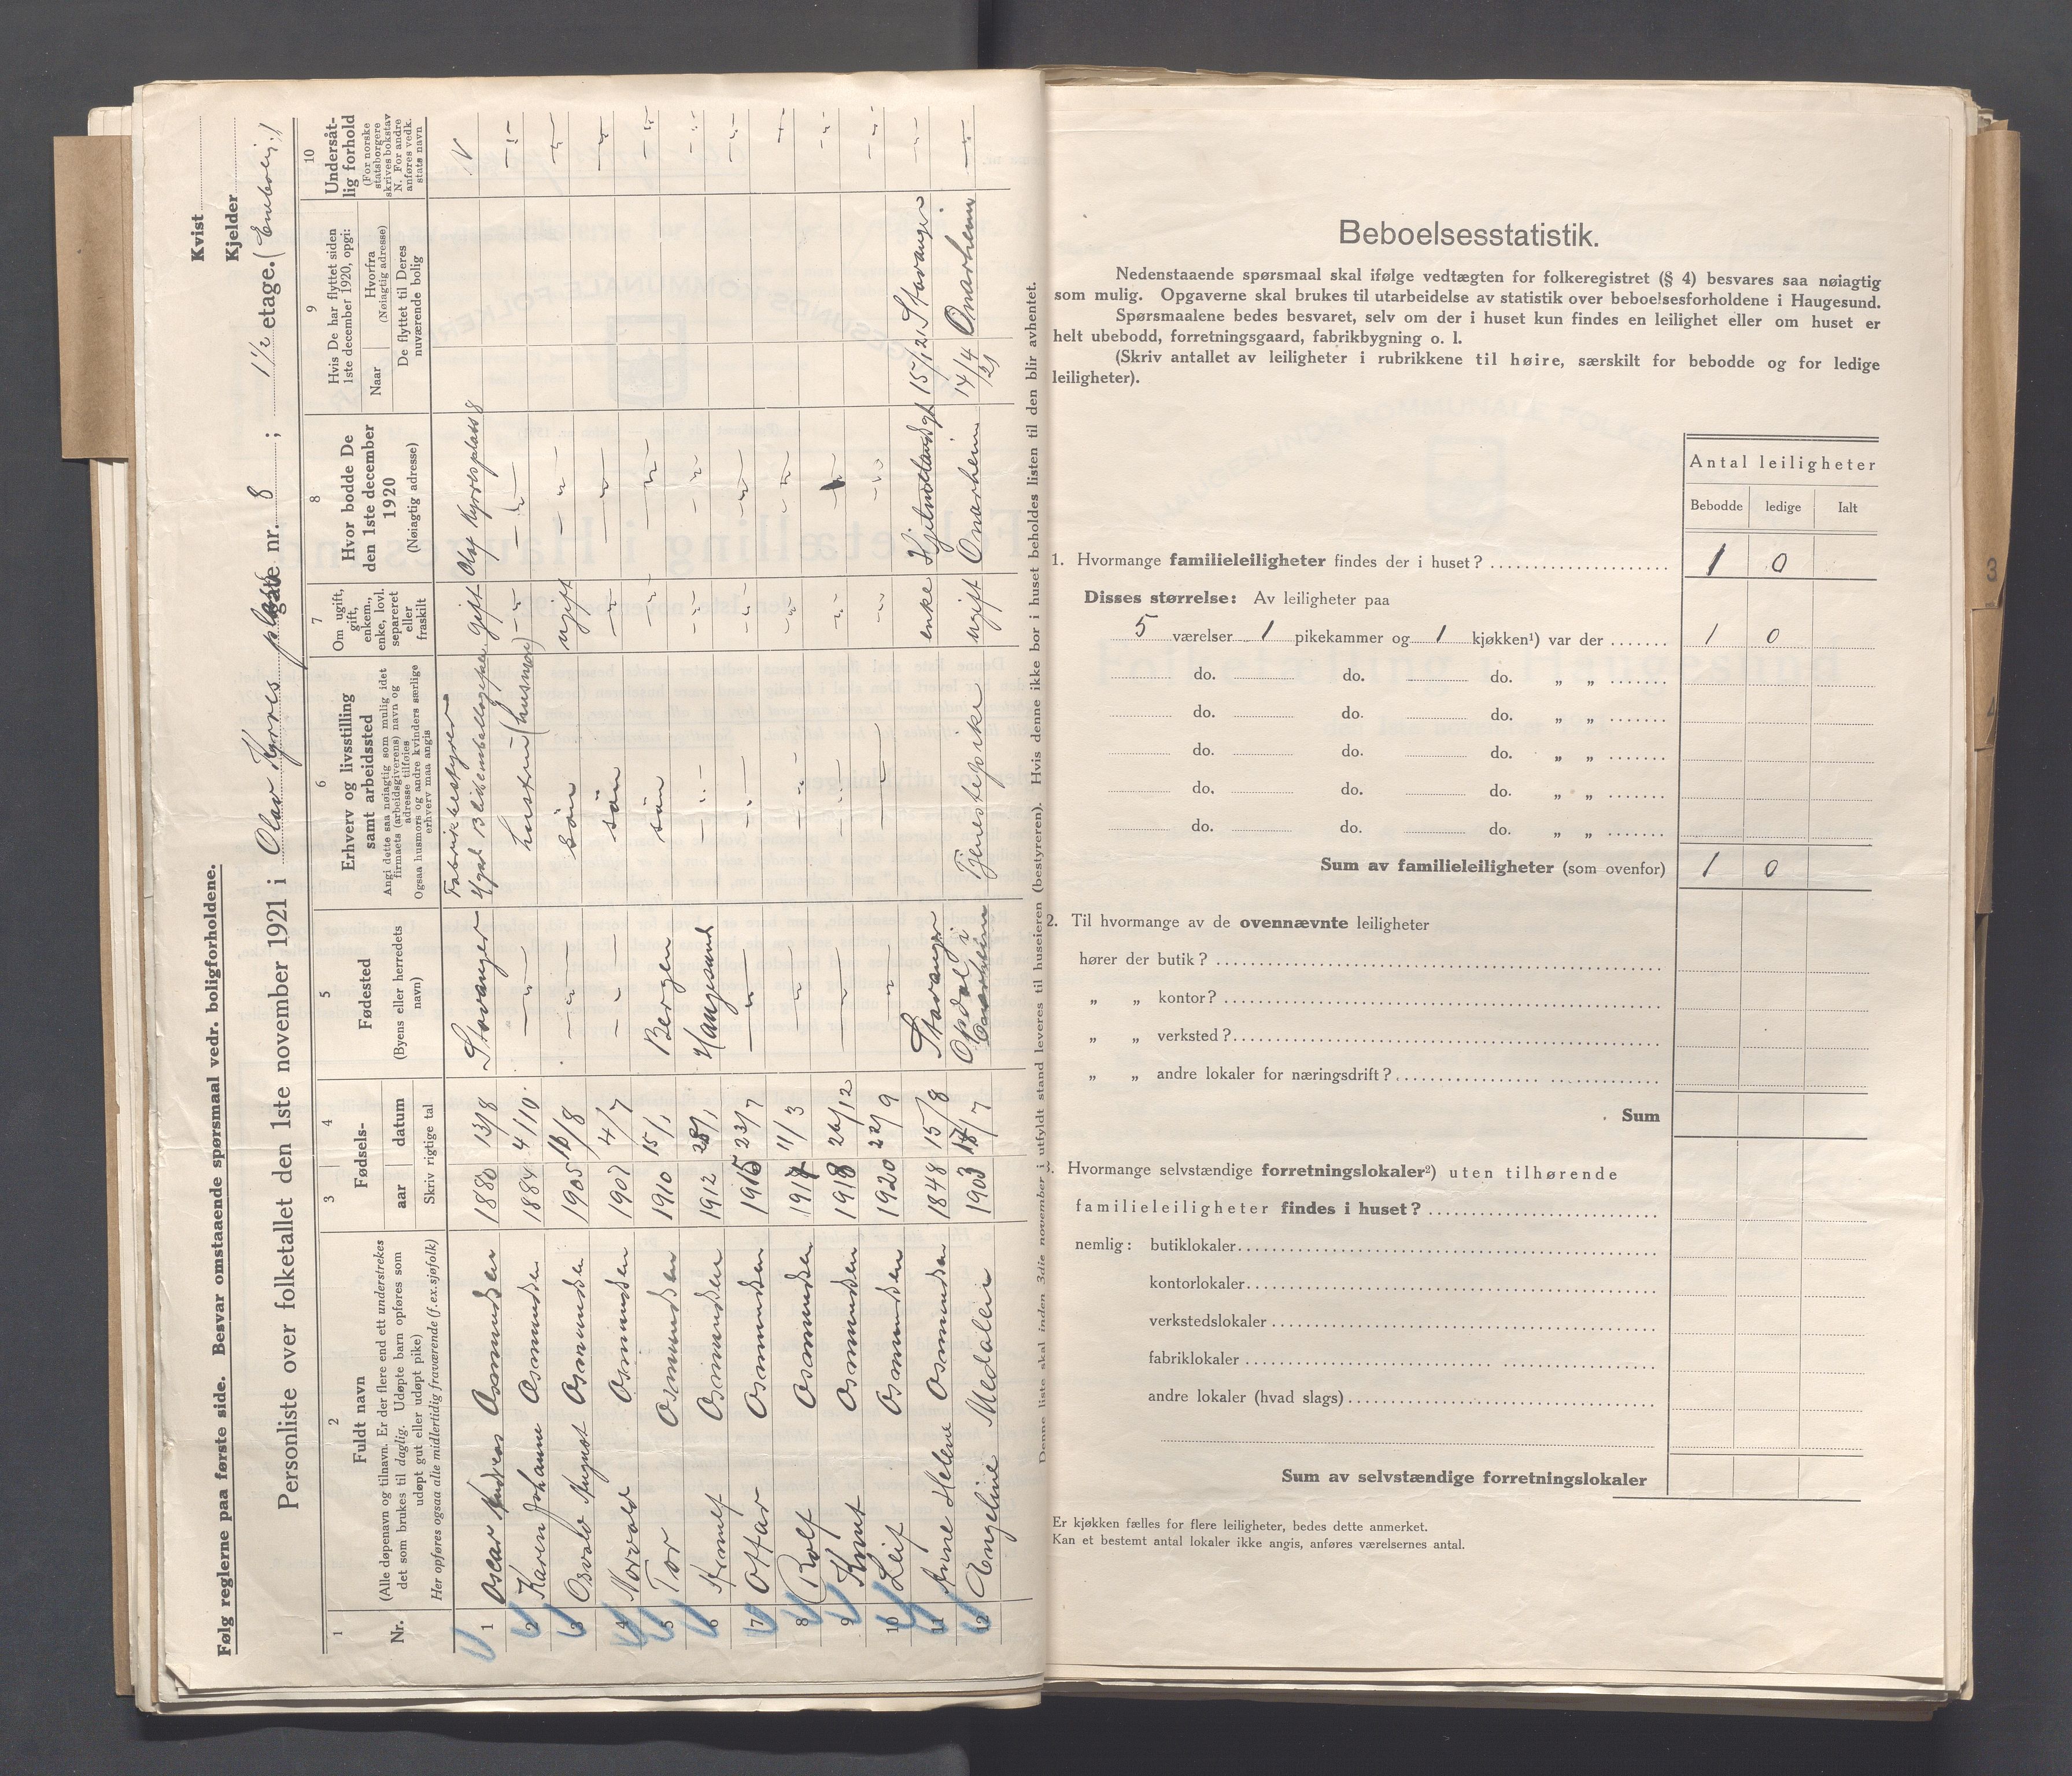 Følg reglerne paa første side. Besvar omstaaende spørsmaal vedr. boligforholdene.
Kvist
Kjelder
Personliste over folketallet den 1ste november 1921 i Olav Kyrres plads gate nr. 8 ; 1 1/2 etage. (Enebolig)
1 2 3 4 5 6 7 8 9 10
Nr.
Fuldt navn
(Alle døpenavn og tilnavn. Er der flere end ett understrekes
det som brukes til daglig. Udøpte barn opføres som
udøpt gut eller udøpt pike)
Her opføres ogsaa alle midlertidig fraværende (f.ex. sjøfolk)
Fødsels-
aar datum
Skriv rigtige tal
Fødested
(Byens eller herredets
navn)
Erhverv og livsstilling
samt arbeidssted
Angi dette saa nøiagtig som mulig idet
firmaets (arbeidsgiverens) navn og
adresse tilføies
Ogsaa husmors og andre kvinders særlige
erhverv maa angis
Om ugift,
gift,
enkem.,
enke, lovl.
separeret
eller
fraskilt
Hvor bodde De
den 1ste december
1920
(Nøiagtig adresse)
Hvis De har flyttet siden
1ste december 1920, opgi:
Naar
Hvorfra
(Nøiagtig adresse)
De flyttet til Deres
nuværende bolig
Undersåt-
lig forhold
(For norske
statsborgere
skrives bokstav
N. For andre
anføres vedk.
stats navn
1 Oscar Andreas Osmundsen 1880 13/8 Stavanger Fabrikbestyrer gift Olaf Kyrresplass 8 N
2 Karen Johanne Osmundsen 1884 4/10 — " — hustru (husmor) — " — — " — — " —
3 Osvald August Osmundsen 1905 /8 — " — søn ugift — " — — " —
4 Norvald Osmundsen 1907 4/7 — " — søn — " — — " — — " —
5 Tor Osmundsen 1910 15/1 Bergen søn — " — — " — — " —
6 Osmundsen 1912 28/1 Haugesund — " — — " — — " — — " —
7 Ottar Osmundsen 1915 23/7 — " — — " — — " — — " — — " —
8 Rolf Osmundsen 1917 11/3 — " — — " — — " — — " — — " —
9 Knut Osmundsen 1918 26/12 — " — — " — — " — — " — — " —
10 Leif Osmundsen 1920 22/9 — " — — " — — " — — " — — " —
11 Anne Helene Osmundsen 1848 15/8 Stavanger enke 15/12 Stavanger — " —
12 Angeline Medalen 1903 /7 Opdal i Tjenestepike ugift Onarheim 14/4 21 Onarheim — " —
Denne liste skal inden 3die november i utfyldt stand leveres til huseieren (bestyreren). Hvis denne ikke bor i huset beholdes listen til den blir avhentet.
Beboelsesstatistik.
Nedenstaaende spørsmaal skal ifølge vedtægten for folkeregistret (§ 4) besvares saa nøiagtig
som mulig. Opgaverne skal brukes til utarbeidelse av statistik over beboelsesforholdene i Haugesund.
Spørsmaalene bedes besvaret, selv om der i huset kun findes en leilighet eller om huset er
helt ubebodd, forretningsgaard, fabrikbygning o. l.
(Skriv antallet av leiligheter i rubrikkene til høire, særskilt for bebodde og for ledige
leiligheter).
Antal leiligheter
Bebodde ledige Ialt
1. Hvormange familieleiligheter findes der i huset? 1 0
Disses størrelse: Av leiligheter paa
5 værelser 1 pikekammer og 1 kjøkken¹) var der 1 0
do. do. do. „ „
do. do. do. „ „
do. do. do. „ „
do. do. do. „ „
do. do. do. „ „
Sum av familieleiligheter (som ovenfor) 1 0
2. Til hvormange av de ovennævnte leiligheter
hører der butik?
„ „ kontor?
„ „ verksted?
„ „ andre lokaler for næringsdrift?
Sum
3. Hvormange selvstændige forretningslokaler²) uten tilhørende
familieleiligheter findes i huset?
nemlig: butiklokaler
kontorlokaler
verkstedslokaler
fabriklokaler
andre lokaler (hvad slags)
Sum av selvstændige forretningslokaler
Er kjøkken fælles for flere leiligheter, bedes dette anmerket.
Kan et bestemt antal lokaler ikke angis, anføres værelsernes antal.
3
4